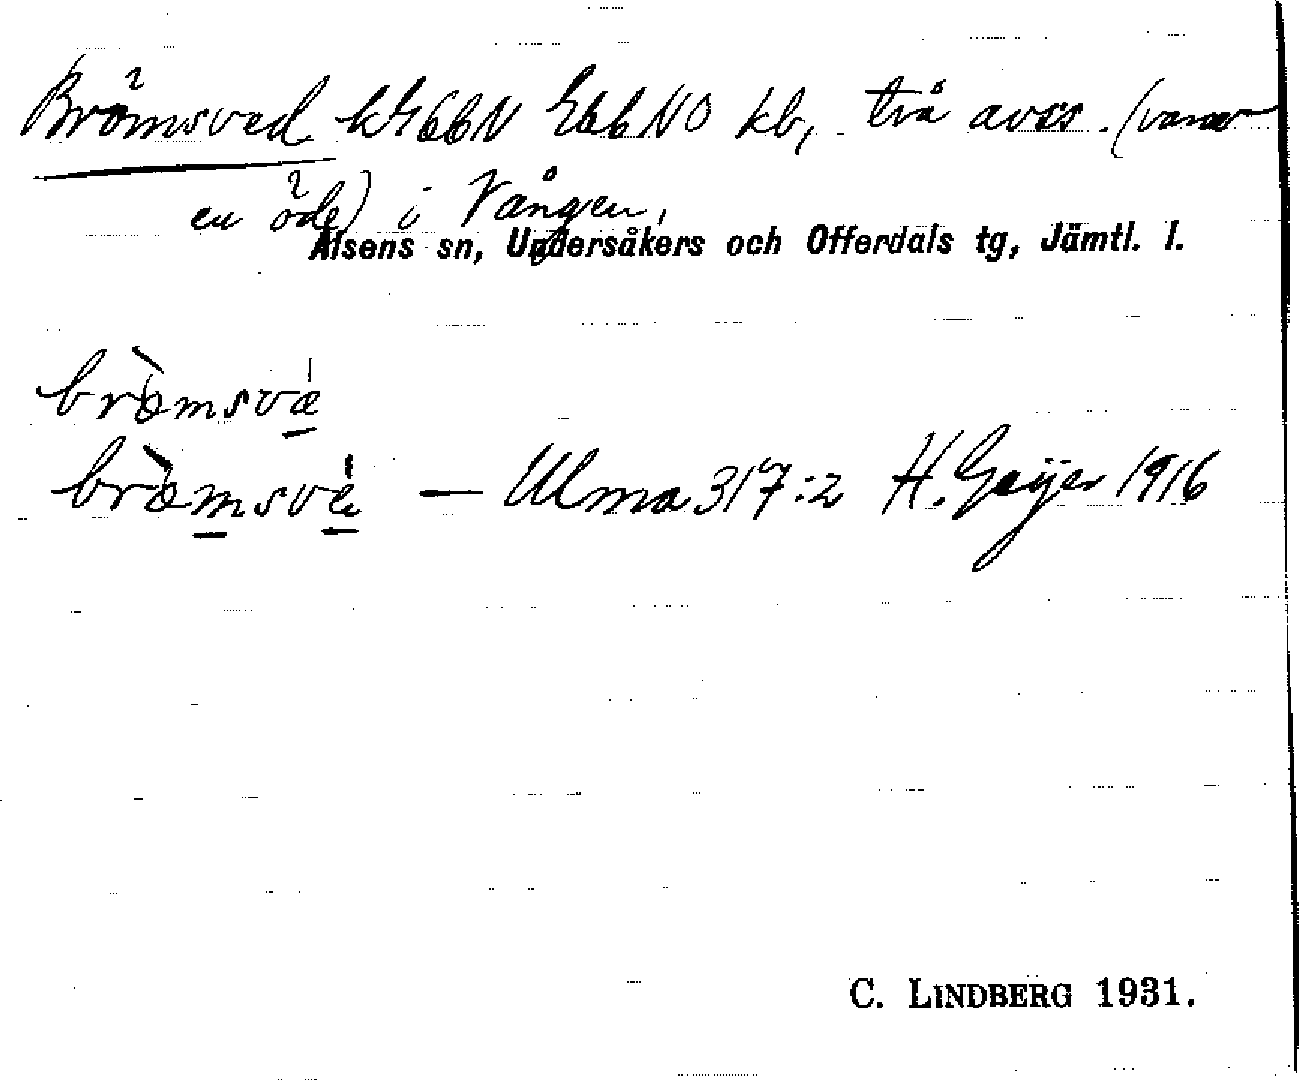 Brömsved kr66N E66NO kb, två avss. (varav
en öde) i Vången,
Alsens sn, Undersåkers och Offerdals tg, Jämtl. l.
bròmsvǽ
bròmsvǽ — Ulma 317:2 H. Geijer 1916
C. LINDBERG 1931.